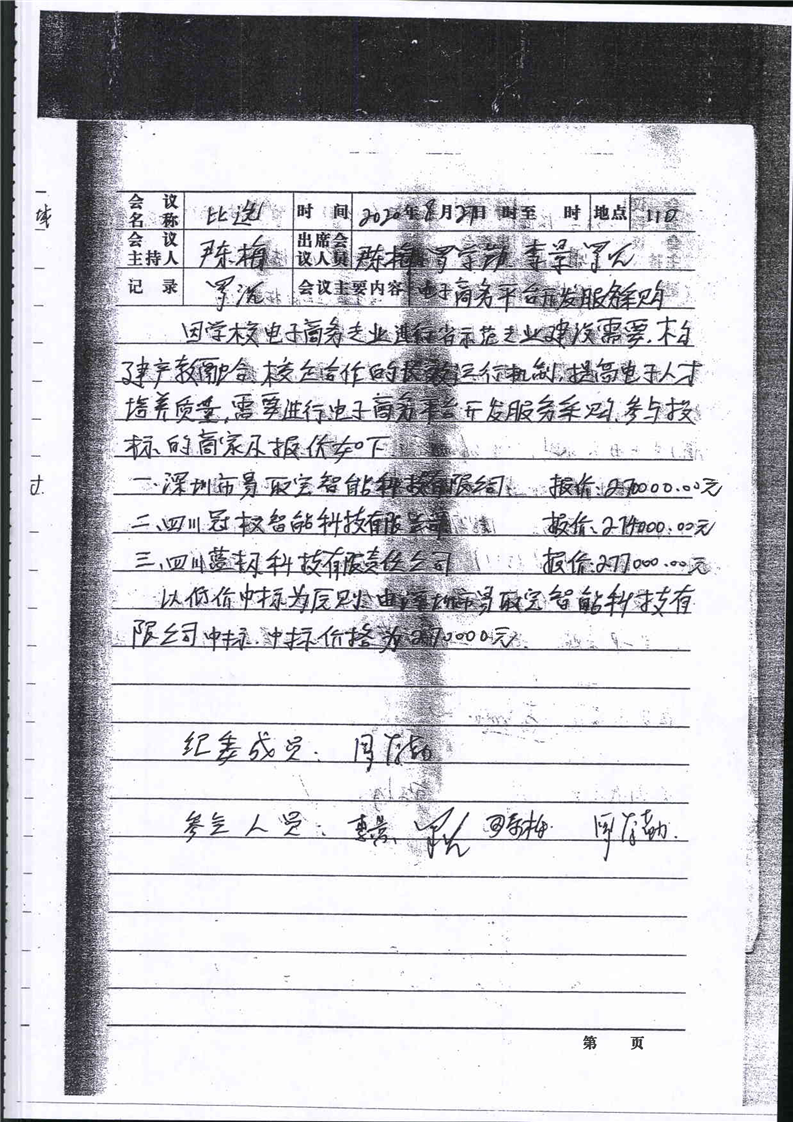 会议名称 比选 时间 2020年8月27日 时至 时 地点 110
会议主持人 陈梅 出席会议人员 陈梅 李景 罗沉
记录 罗沉 会议主要内容 电子商务平台开发服务采购
因学校电子商务专业进行省示范专业建设需要,构
建产教融合,校企合作的长效运行机制,提高电子人才
培养质量,需要进行电子商务平台开发服务采购,参与投
标的商家及报价如下
一、深圳市易取宝智能科技有限公司 报价:270000.00元
二、四川冠权智能科技有限公司 报价:274000.00元
三、四川蓝材科技有限责任公司 报价:277000.00元
以低价中标为原则,由深圳市易取宝智能科技有
限公司中标,中标价格为270000元
纪委成员:
参会人员: 李景 罗沉 陈梅
第 页